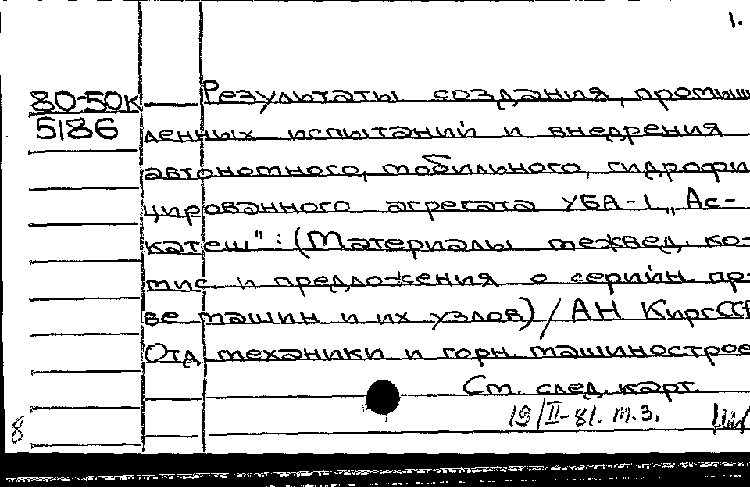 1.
80-50к Результаты создания, промыш
5186 ленных испытаний и внедрения
автономного, мобильного, гидрофи
цированного агрегата УБА-1 „Ас-
катеш": (Материалы межвед. ко-
мис. и предложения о серийн. пр-
ве машин и их узлов) / АН КиргССР
Отд. механики и горн. машинострое
См. след. карт.
19/II-81. т.3.